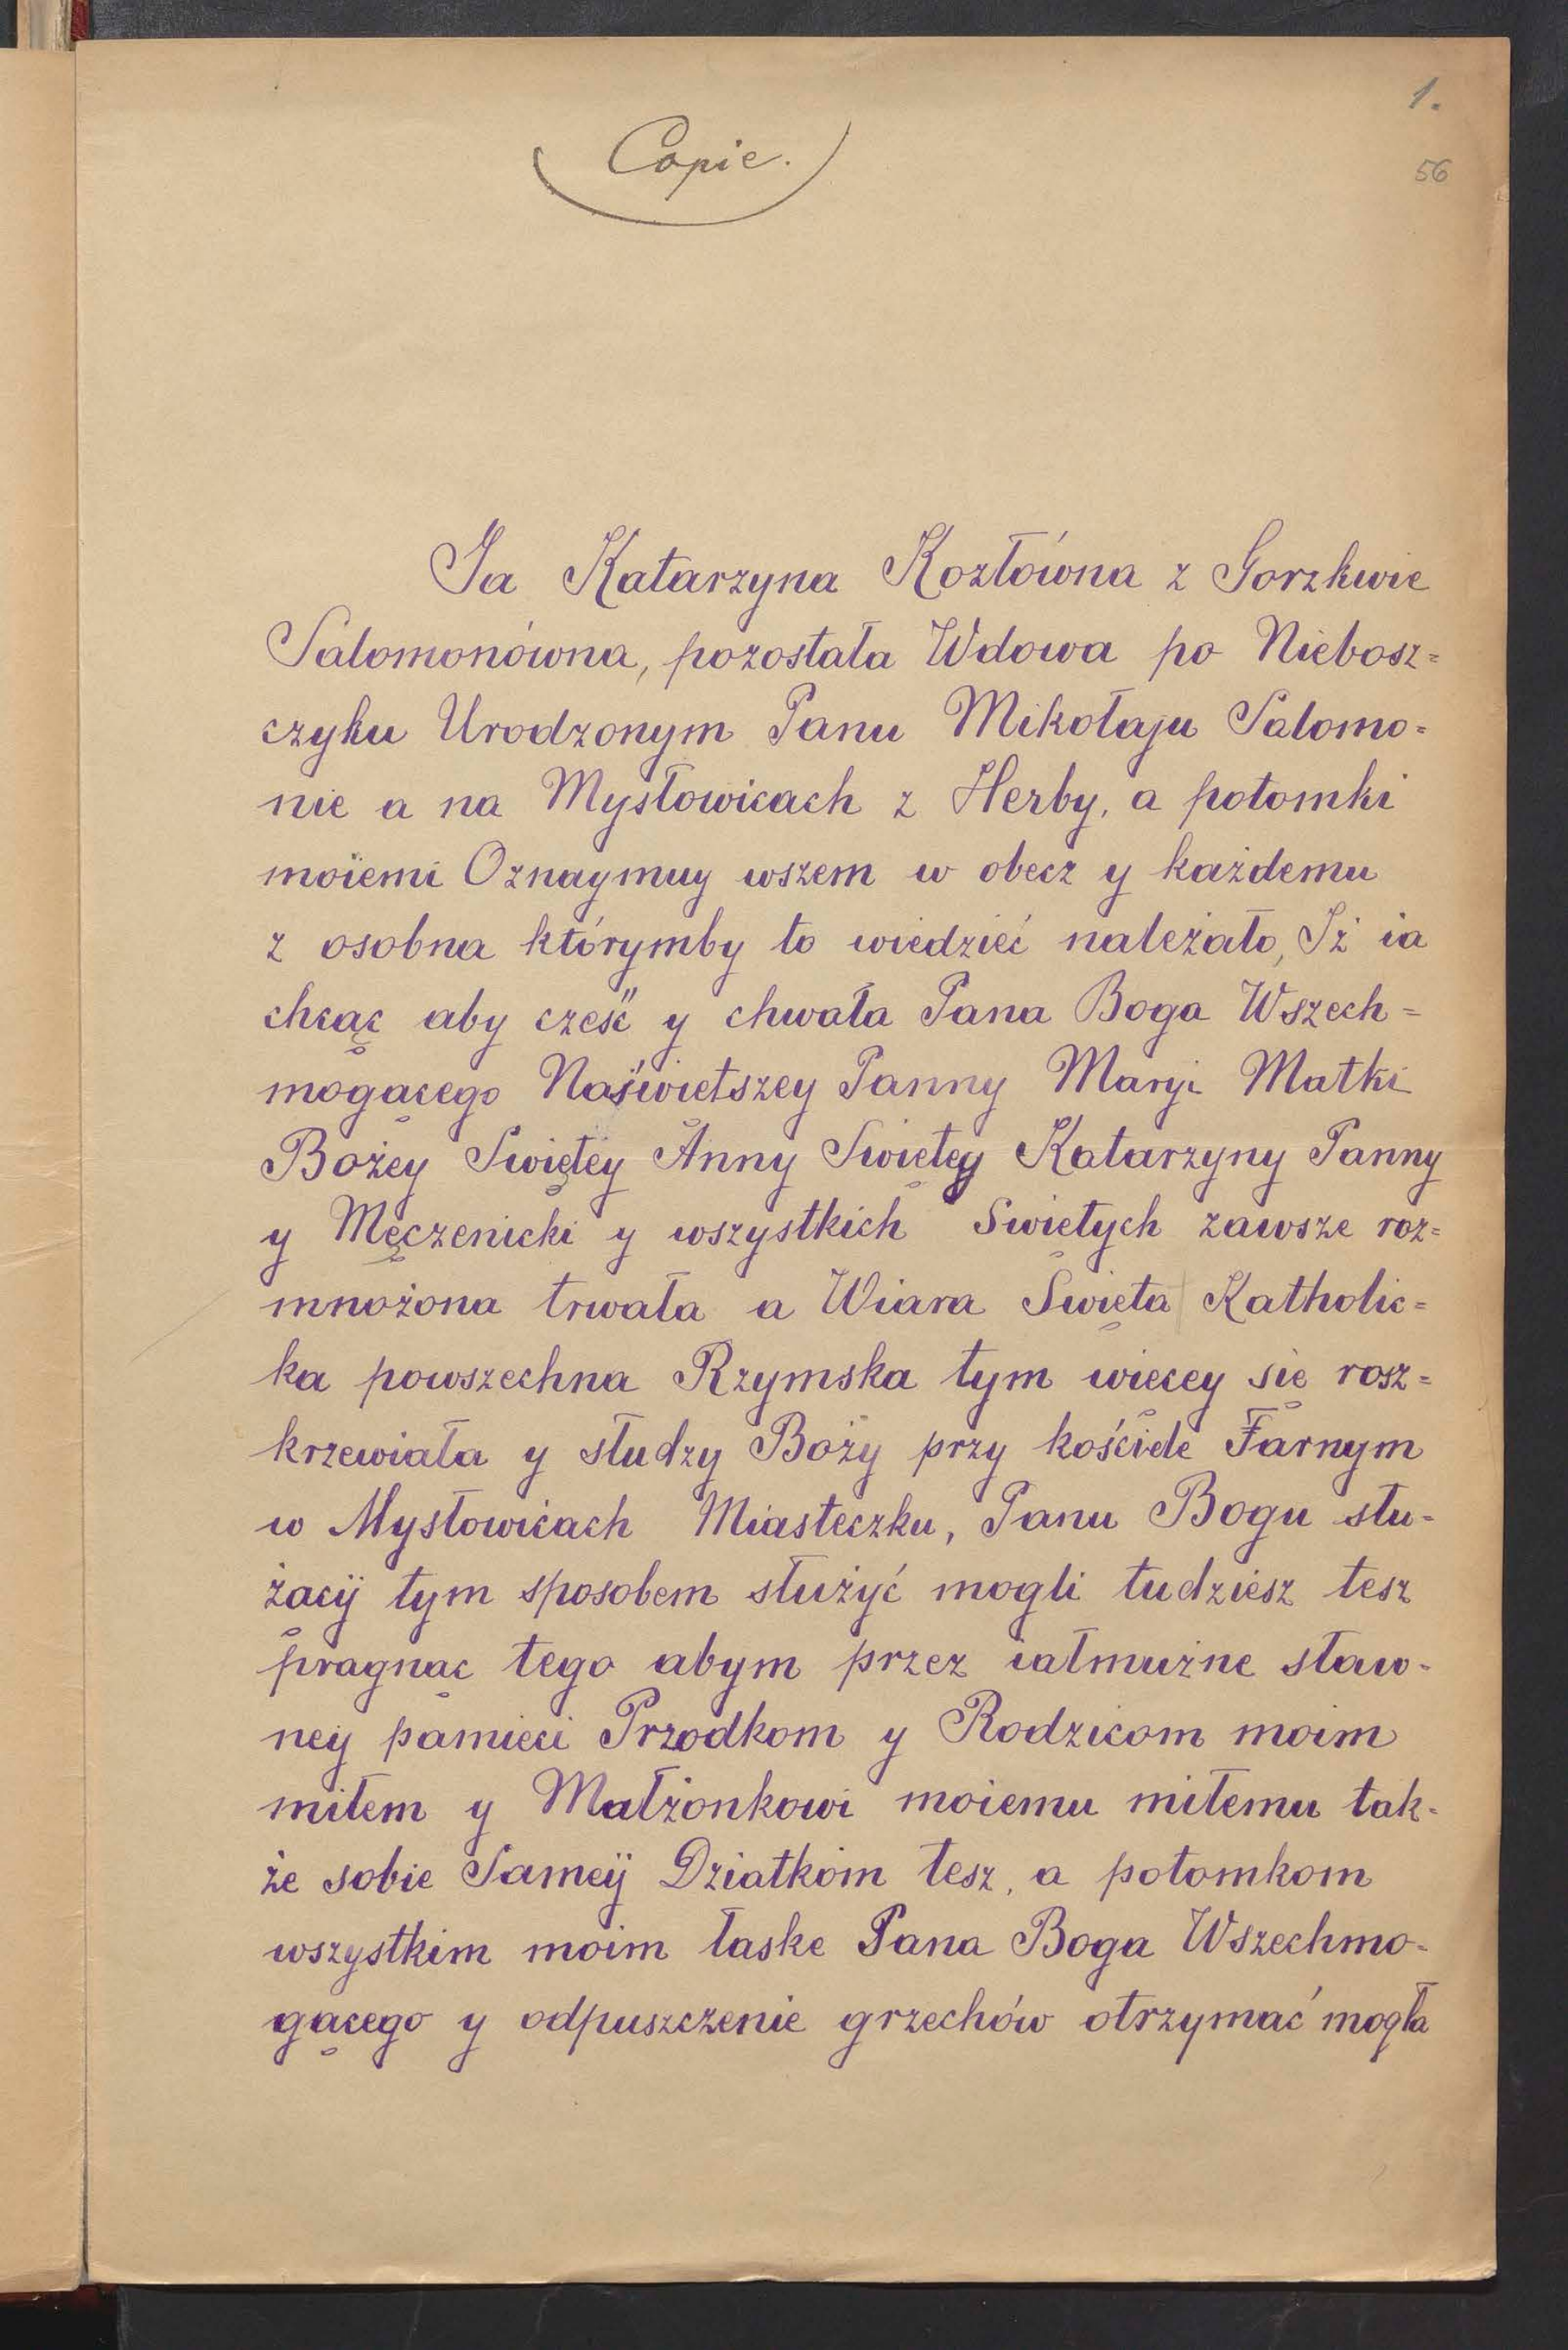 1.
Copie.
56
Ja Katarzyna Kozłówna z Gorzkwie
Salomonówna, pozostała Wdowa po Niebosz=
czyku Urodzonym Panu Mikołaju Salomo=
nie a na Mysłowicach z Herby, a potomki
moiemi Oznaymuy wszem w obecz y każdemu
z osobna którymby to wiedzieć należało, Iż ia
chcąc aby cześć y chwała Pana Boga Wszech=
mogącego Naświetszey Panny Maryi Matki
Bożey Swiętey Anny Swiętey Katarzyny Panny
y Męczenicki y wszystkich Swiętych zawsze roz=
mnożona trwała a Wiara Swięta Katholic=
ka powszechna Rzymska tym więcey się rosz=
krzewiała y słudzy Boży przy kościele Farnym
w Mysłowicach Miasteczku, Panu Bogu słu=
żącÿ tym sposobem służyć mogli tudziesz tesz
pragnąc tego abym przez iałmużne sław=
ney pamieci Przodkom y Rodzicom moim
miłem y Małżonkowi moiemu miłemu tak=
że sobie Sameÿ Dziatkom tesz, a potomkom
wszystkim moim łaske Pana Boga Wszechmo=
gącego y odpuszczenie grzechów otrzymać mogła